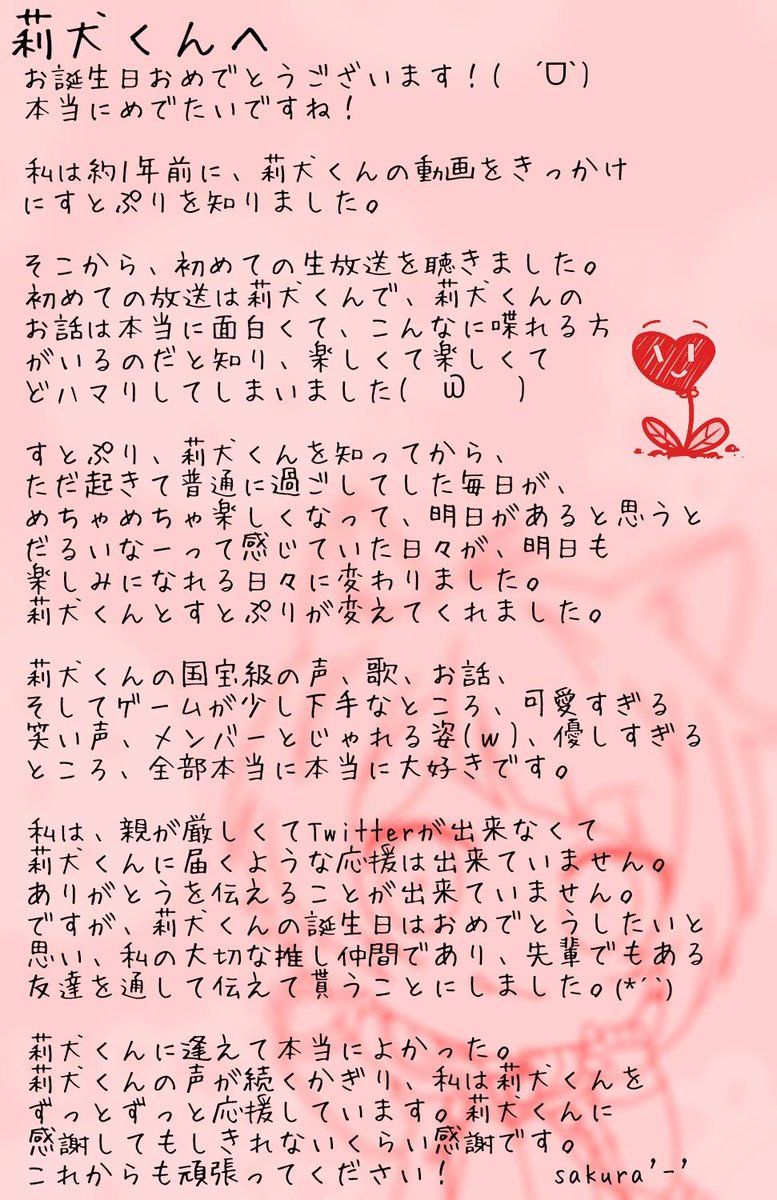 莉犬くんへ
お誕生日おめでとうございます！( ´ᗜ`)
本当にめでたいですね！
私は約1年前に、莉犬くんの動画をきっかけ
にすとぷりを知りました。
そこから、初めての生放送を聴きました。
初めての放送は莉犬くんで、莉犬くんの
お話は本当に面白くて、こんなに喋れる方
がいるのだと知り、楽しくて楽しくて
どハマりしてしまいました( ω )
すとぷり、莉犬くんを知ってから、
ただ起きて普通に過ごしてした毎日が、
めちゃめちゃ楽しくなって、明日があると思うと
だるいなーって感じていた日々が、明日も
楽しみになれる日々に変わりました。
莉犬くんとすとぷりが変えてくれました。
莉犬くんの国宝級の声、歌、お話、
そしてゲームが少し下手なところ、可愛すぎる
笑い声、メンバーとじゃれる姿(w)、優しすぎる
ところ、全部本当に本当に大好きです。
私は、親が厳しくてTwitterが出来なくて
莉犬くんに届くような応援は出来ていません。
ありがとうを伝えることが出来ていません。
ですが、莉犬くんの誕生日はおめでとうしたいと
思い、私の大切な推し仲間であり、先輩でもある
友達を通して伝えて貰うことにしました。(*´`)
莉犬くんに逢えて本当によかった。
莉犬くんの声が続くかぎり、私は莉犬くんを
ずっとずっと応援しています。莉犬くんに
感謝してもしきれないくらい感謝です。
これからも頑張ってください！ sakura'-'